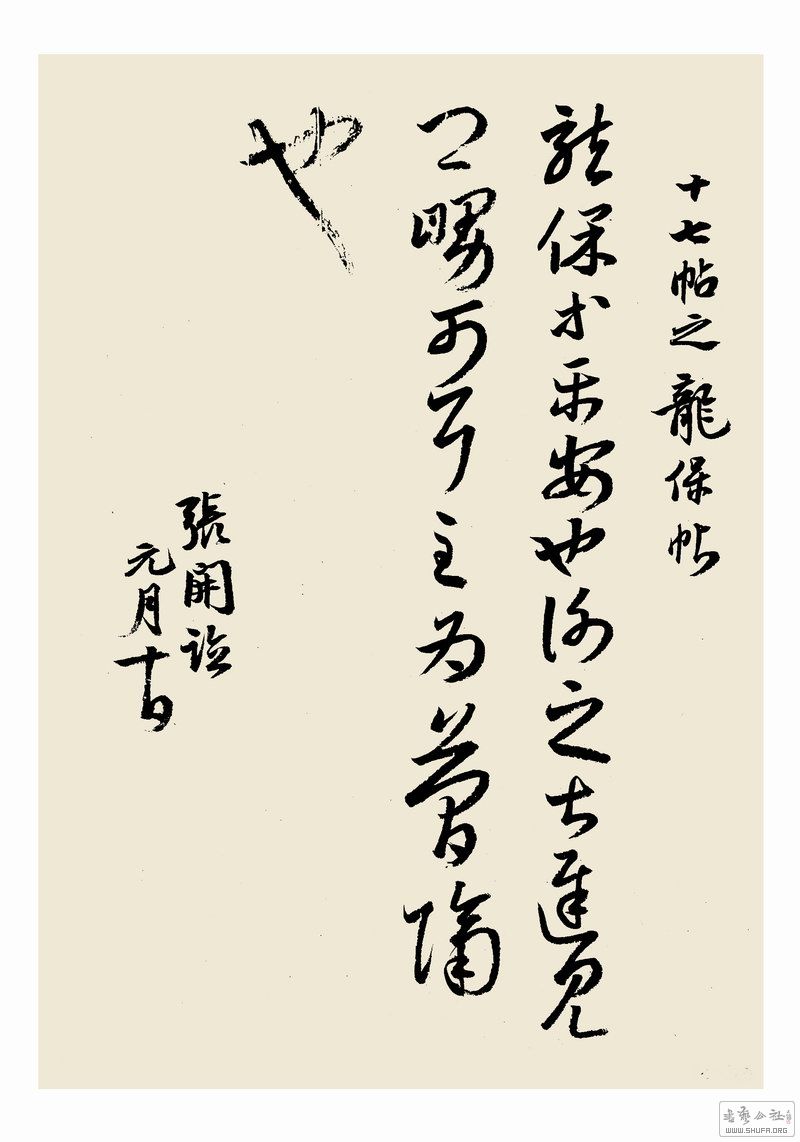 十七帖之龍保帖
龍保等平安也謝之甚遲見
卿舅可耳至為簡隔
也
張開
元月十日
書藝公社
WWW.SHUFA.ORG